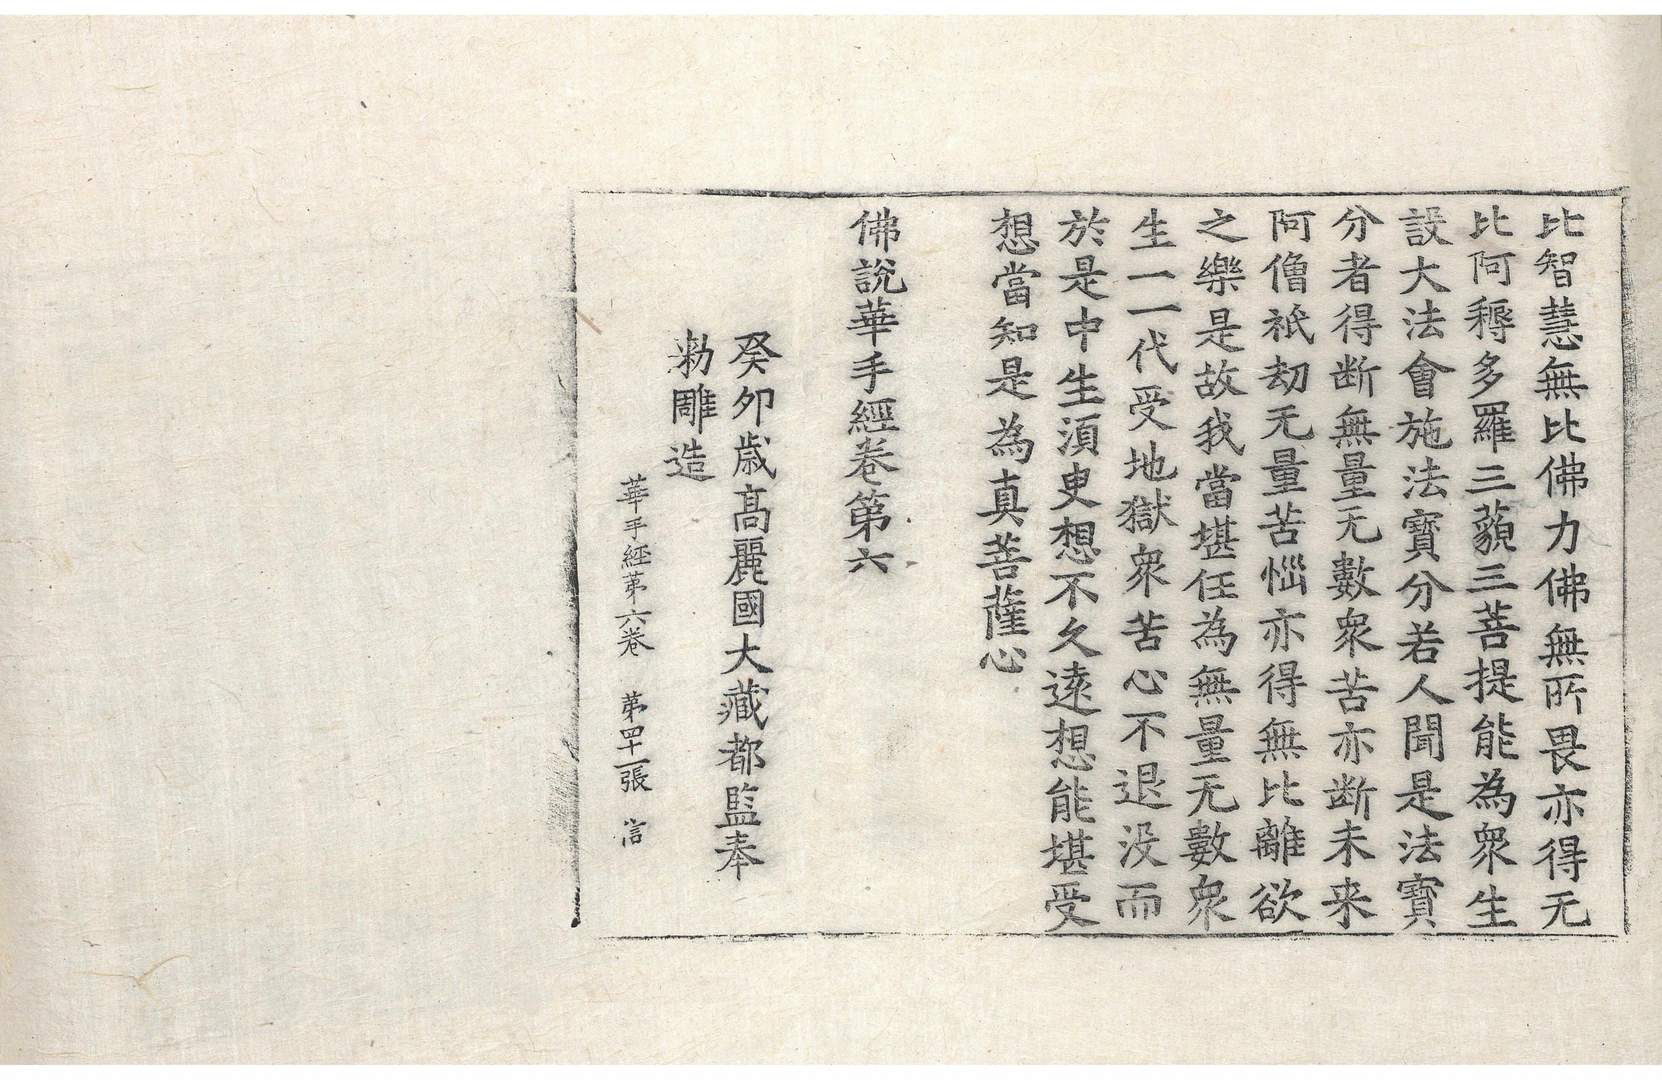 比智慧無比佛力佛無所畏亦得无
比阿耨多羅三藐三菩提能為衆生
設大法會施法寶分若人聞是法寶
分者得断無量无數衆苦亦断未来
阿僧祇劫无量苦惱亦得無比離欲
之樂是故我當堪任為無量无數衆
生一一代受地獄衆苦心不退没而
於是中生須臾想不久遠想能堪受
想當知是為真菩薩心
佛說華手經卷第六
癸卯歲高麗國大藏都監奉
勅雕造
華手經第六卷 第四十一張 言